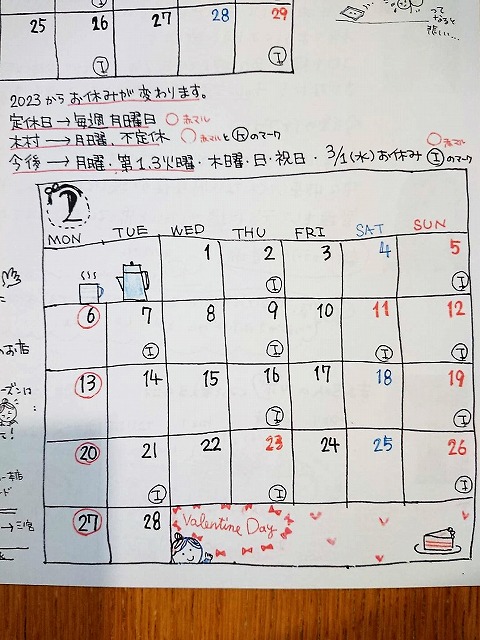 25 26 27 28 29
エ エ
って
なると
悲しい…
2023からお休みが変わります。
定休日→毎週月曜日 ○赤マル
木村→月曜、不定休 ○赤マルと㋖のマーク
○赤マル
今後→月曜・第1.3火曜・木曜・日・祝日・3/1(水)お休み エのマーク
2
MON TUE WED THU FRI SAT SUN
1 2 3 4 5
エ エ
6 7 8 9 10 11 12
エ エ エ エ
13 14 15 16 17 18 19
エ エ
20 21 22 23 24 25 26
エ エ エ
27 28
Valentine Day
のお店
ーズンは
て!
ー本店
ード
→三宮